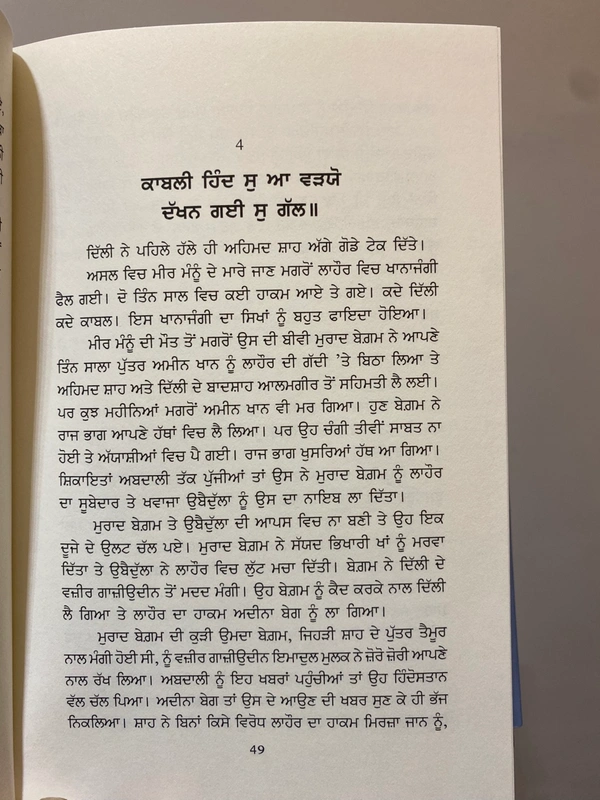 4
ਕਾਬਲੀ ਹਿੰਦ ਸੁ ਆ ਵੜਯੋ
ਦੱਖਨ ਗਈ ਸੁ ਗੱਲ॥
ਦਿੱਲੀ ਨੇ ਪਹਿਲੇ ਹੱਲੇ ਹੀ ਅਹਿਮਦ ਸ਼ਾਹ ਅੱਗੇ ਗੋਡੇ ਟੇਕ ਦਿੱਤੇ।
ਅਸਲ ਵਿਚ ਮੀਰ ਮੰਨੂੰ ਦੇ ਮਾਰੇ ਜਾਣ ਮਗਰੋਂ ਲਾਹੌਰ ਵਿਚ ਖਾਨਾਜੰਗੀ
ਫੈਲ ਗਈ। ਦੋ ਤਿੰਨ ਸਾਲ ਵਿਚ ਕਈ ਹਾਕਮ ਆਏ ਤੇ ਗਏ। ਕਦੇ ਦਿੱਲੀ
ਕਦੇ ਕਾਬਲ। ਇਸ ਖਾਨਾਜੰਗੀ ਦਾ ਸਿਖਾਂ ਨੂੰ ਬਹੁਤ ਫਾਇਦਾ ਹੋਇਆ।
ਮੀਰ ਮੰਨੂੰ ਦੀ ਮੌਤ ਤੋਂ ਮਗਰੋਂ ਉਸ ਦੀ ਬੀਵੀ ਮੁਰਾਦ ਬੇਗ਼ਮ ਨੇ ਆਪਣੇ
ਤਿੰਨ ਸਾਲਾ ਪੁੱਤਰ ਅਮੀਨ ਖਾਨ ਨੂੰ ਲਾਹੌਰ ਦੀ ਗੱਦੀ ’ਤੇ ਬਿਠਾ ਲਿਆ ਤੇ
ਅਹਿਮਦ ਸ਼ਾਹ ਅਤੇ ਦਿੱਲੀ ਦੇ ਬਾਦਸ਼ਾਹ ਆਲਮਗੀਰ ਤੋਂ ਸਹਿਮਤੀ ਲੈ ਲਈ।
ਪਰ ਕੁਝ ਮਹੀਨਿਆਂ ਮਗਰੋਂ ਅਮੀਨ ਖਾਨ ਵੀ ਮਰ ਗਿਆ। ਹੁਣ ਬੇਗ਼ਮ ਨੇ
ਰਾਜ ਭਾਗ ਆਪਣੇ ਹੱਥਾਂ ਵਿਚ ਲੈ ਲਿਆ। ਪਰ ਉਹ ਚੰਗੀ ਤੀਵੀਂ ਸਾਬਤ ਨਾ
ਹੋਈ ਤੇ ਅੱਯਾਸ਼ੀਆਂ ਵਿਚ ਪੈ ਗਈ। ਰਾਜ ਭਾਗ ਖੁਸਰਿਆਂ ਹੱਥ ਆ ਗਿਆ।
ਸ਼ਿਕਾਇਤਾਂ ਅਬਦਾਲੀ ਤੱਕ ਪੁੱਜੀਆਂ ਤਾਂ ਉਸ ਨੇ ਮੁਰਾਦ ਬੇਗ਼ਮ ਨੂੰ ਲਾਹੌਰ
ਦਾ ਸੂਬੇਦਾਰ ਤੇ ਖਵਾਜਾ ਉਬੈਦੁੱਲਾ ਨੂੰ ਉਸ ਦਾ ਨਾਇਬ ਲਾ ਦਿੱਤਾ।
ਮੁਰਾਦ ਬੇਗ਼ਮ ਤੇ ਉਬੈਦੁੱਲਾ ਦੀ ਆਪਸ ਵਿਚ ਨਾ ਬਣੀ ਤੇ ਉਹ ਇਕ
ਦੂਜੇ ਦੇ ਉਲਟ ਚੱਲ ਪਏ। ਮੁਰਾਦ ਬੇਗ਼ਮ ਨੇ ਸੱਯਦ ਭਿਖਾਰੀ ਖਾਂ ਨੂੰ ਮਰਵਾ
ਦਿੱਤਾ ਤੇ ਉਬੈਦੁੱਲਾ ਨੇ ਲਾਹੌਰ ਵਿਚ ਲੁੱਟ ਮਚਾ ਦਿੱਤੀ। ਬੇਗ਼ਮ ਨੇ ਦਿੱਲੀ ਦੇ
ਵਜ਼ੀਰ ਗਾਜ਼ੀਉਦੀਨ ਤੋਂ ਮਦਦ ਮੰਗੀ। ਉਹ ਬੇਗ਼ਮ ਨੂੰ ਕੈਦ ਕਰਕੇ ਨਾਲ ਦਿੱਲੀ
ਲੈ ਗਿਆ ਤੇ ਲਾਹੌਰ ਦਾ ਹਾਕਮ ਅਦੀਨਾ ਬੇਗ ਨੂੰ ਲਾ ਗਿਆ।
ਮੁਰਾਦ ਬੇਗ਼ਮ ਦੀ ਕੁੜੀ ਉਮਦਾ ਬੇਗ਼ਮ, ਜਿਹੜੀ ਸ਼ਾਹ ਦੇ ਪੁੱਤਰ ਤੈਮੂਰ
ਨਾਲ ਮੰਗੀ ਹੋਈ ਸੀ, ਨੂੰ ਵਜ਼ੀਰ ਗਾਜ਼ੀਉਦੀਨ ਇਮਾਦੁਲ ਮੁਲਕ ਨੇ ਜ਼ੋਰੋ ਜ਼ੋਰੀ ਆਪਣੇ
ਨਾਲ ਰੱਖ ਲਿਆ। ਅਬਦਾਲੀ ਨੂੰ ਇਹ ਖਬਰਾਂ ਪਹੁੰਚੀਆਂ ਤਾਂ ਉਹ ਹਿੰਦੋਸਤਾਨ
ਵੱਲ ਚੱਲ ਪਿਆ। ਅਦੀਨਾ ਬੇਗ ਤਾਂ ਉਸ ਦੇ ਆਉਣ ਦੀ ਖਬਰ ਸੁਣ ਕੇ ਹੀ ਭੱਜ
ਨਿਕਲਿਆ। ਸ਼ਾਹ ਨੇ ਬਿਨਾਂ ਕਿਸੇ ਵਿਰੋਧ ਲਾਹੌਰ ਦਾ ਹਾਕਮ ਮਿਰਜ਼ਾ ਜਾਨ ਨੂੰ,
49